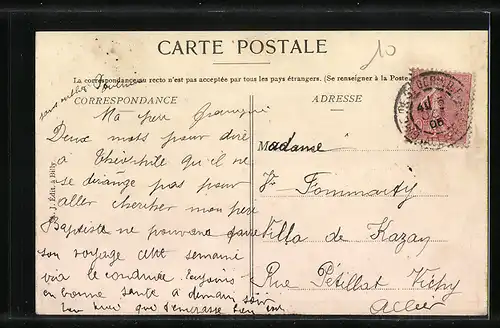 CARTE POSTALE
10
La correspondance au recto n'est pas acceptée par tous les pays étrangers. (Se renseigner à la Poste
CORRESPONDANCE
ADRESSE
Ma
Deux mots pour dire
à Théophile qu'il ne
se dérange pas pour
aller chercher mon père
Baptiste ne pouvant faire
son voyage cette semaine
le conduire toujours
en bonne santé à demain soir
Madame
Vve
Villa de Kazay
Rue Pétillat Vichy
Allier
J. Édit. à Billy
06